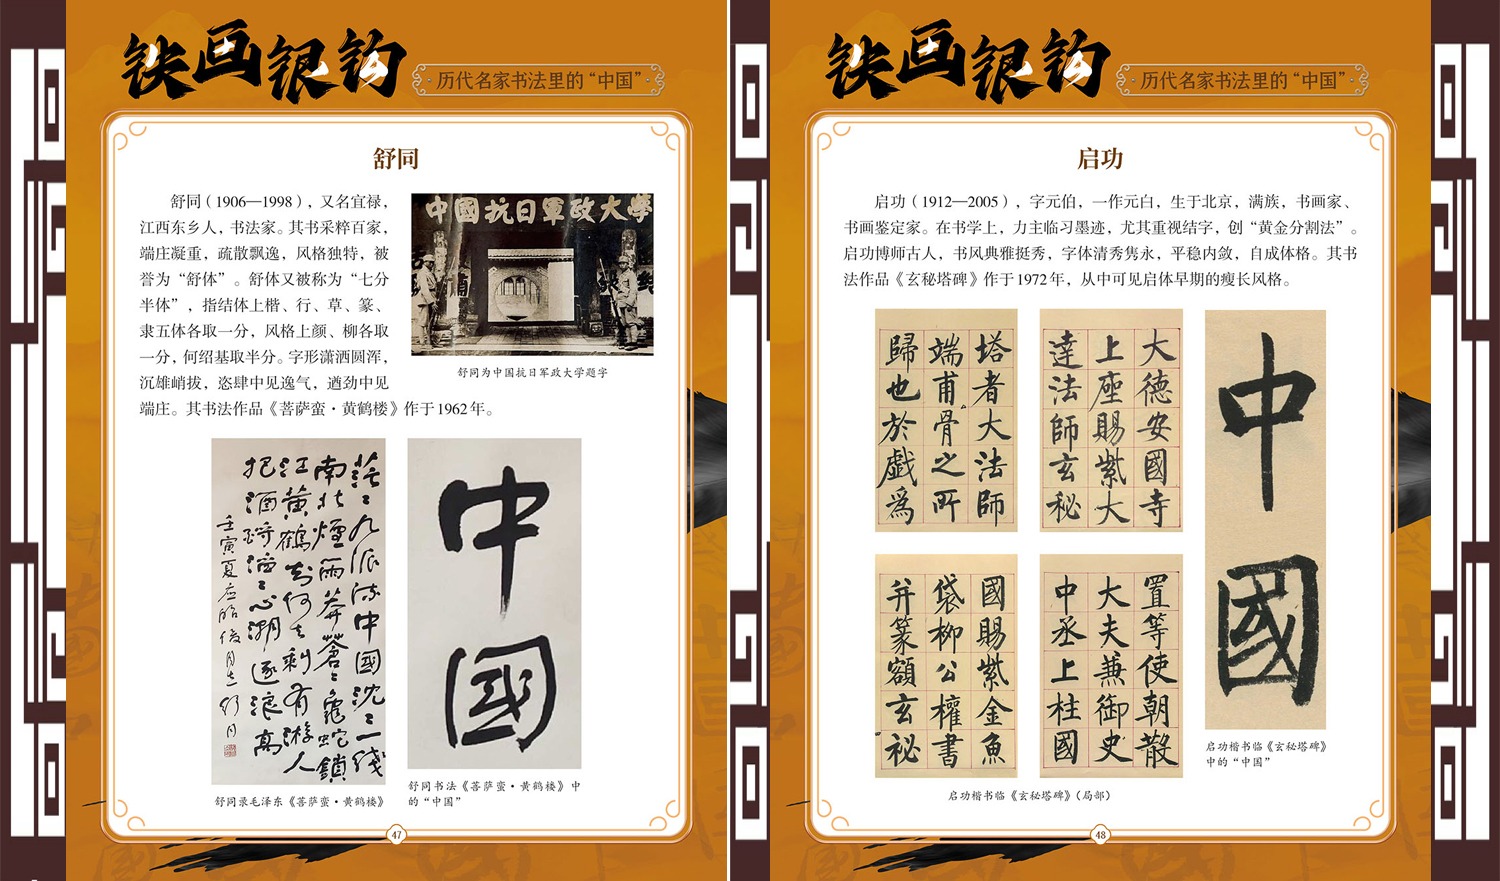 铁画银钩
历代名家书法里的“中国”
舒同
舒同（1906—1998），又名宜禄，
江西东乡人，书法家。其书采粹百家，
端庄凝重，疏散飘逸，风格独特，被
誉为“舒体”。舒体又被称为“七分
半体”，指结体上楷、行、草、篆、
隶五体各取一分，风格上颜、柳各取
一分，何绍基取半分。字形潇洒圆浑，
沉雄峭拔，恣肆中见逸气，遒劲中见
端庄。其书法作品《菩萨蛮·黄鹤楼》作于1962年。
中國抗日軍政大學
舒同为中国抗日军政大学题字
茫〻九派流中國沈〻一綫
南北煙雨莽蒼〻龜蛇鎖
江黄鶴知何去剩有游人
把酒酹滔〻心潮逐浪高
壬寅夏应
舒同
舒同录毛泽东《菩萨蛮·黄鹤楼》
中國
舒同书法《菩萨蛮·黄鹤楼》中
的“中国”
47
铁画银钩
历代名家书法里的“中国”
启功
启功（1912—2005），字元伯，一作元白，生于北京，满族，书画家、
书画鉴定家。在书学上，力主临习墨迹，尤其重视结字，创“黄金分割法”。
启功博师古人，书风典雅挺秀，字体清秀隽永，平稳内敛，自成体格。其书
法作品《玄秘塔碑》作于1972年，从中可见启体早期的瘦长风格。
大德安國寺
上座賜紫大
達法師玄秘
塔者大法師
端甫骨之所
歸也於戯爲
置等使朝散
大夫兼御史
中丞上柱國
國賜紫金魚
袋柳公權書
并篆額玄秘
启功楷书临《玄秘塔碑》（局部）
中國
启功楷书临《玄秘塔碑》
中的“中国”
48